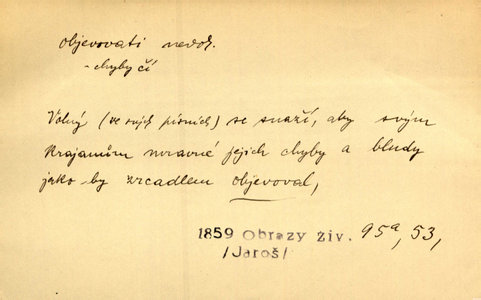 objevovati nedok.
- chyby čí
Volný (ve svých písních) se snaží, aby svým
krajanům mravné jejich chyby a bludy
jako by zrcadlem objevoval,
1859 Obrazy živ. 95a, 53,
/Jaroš/